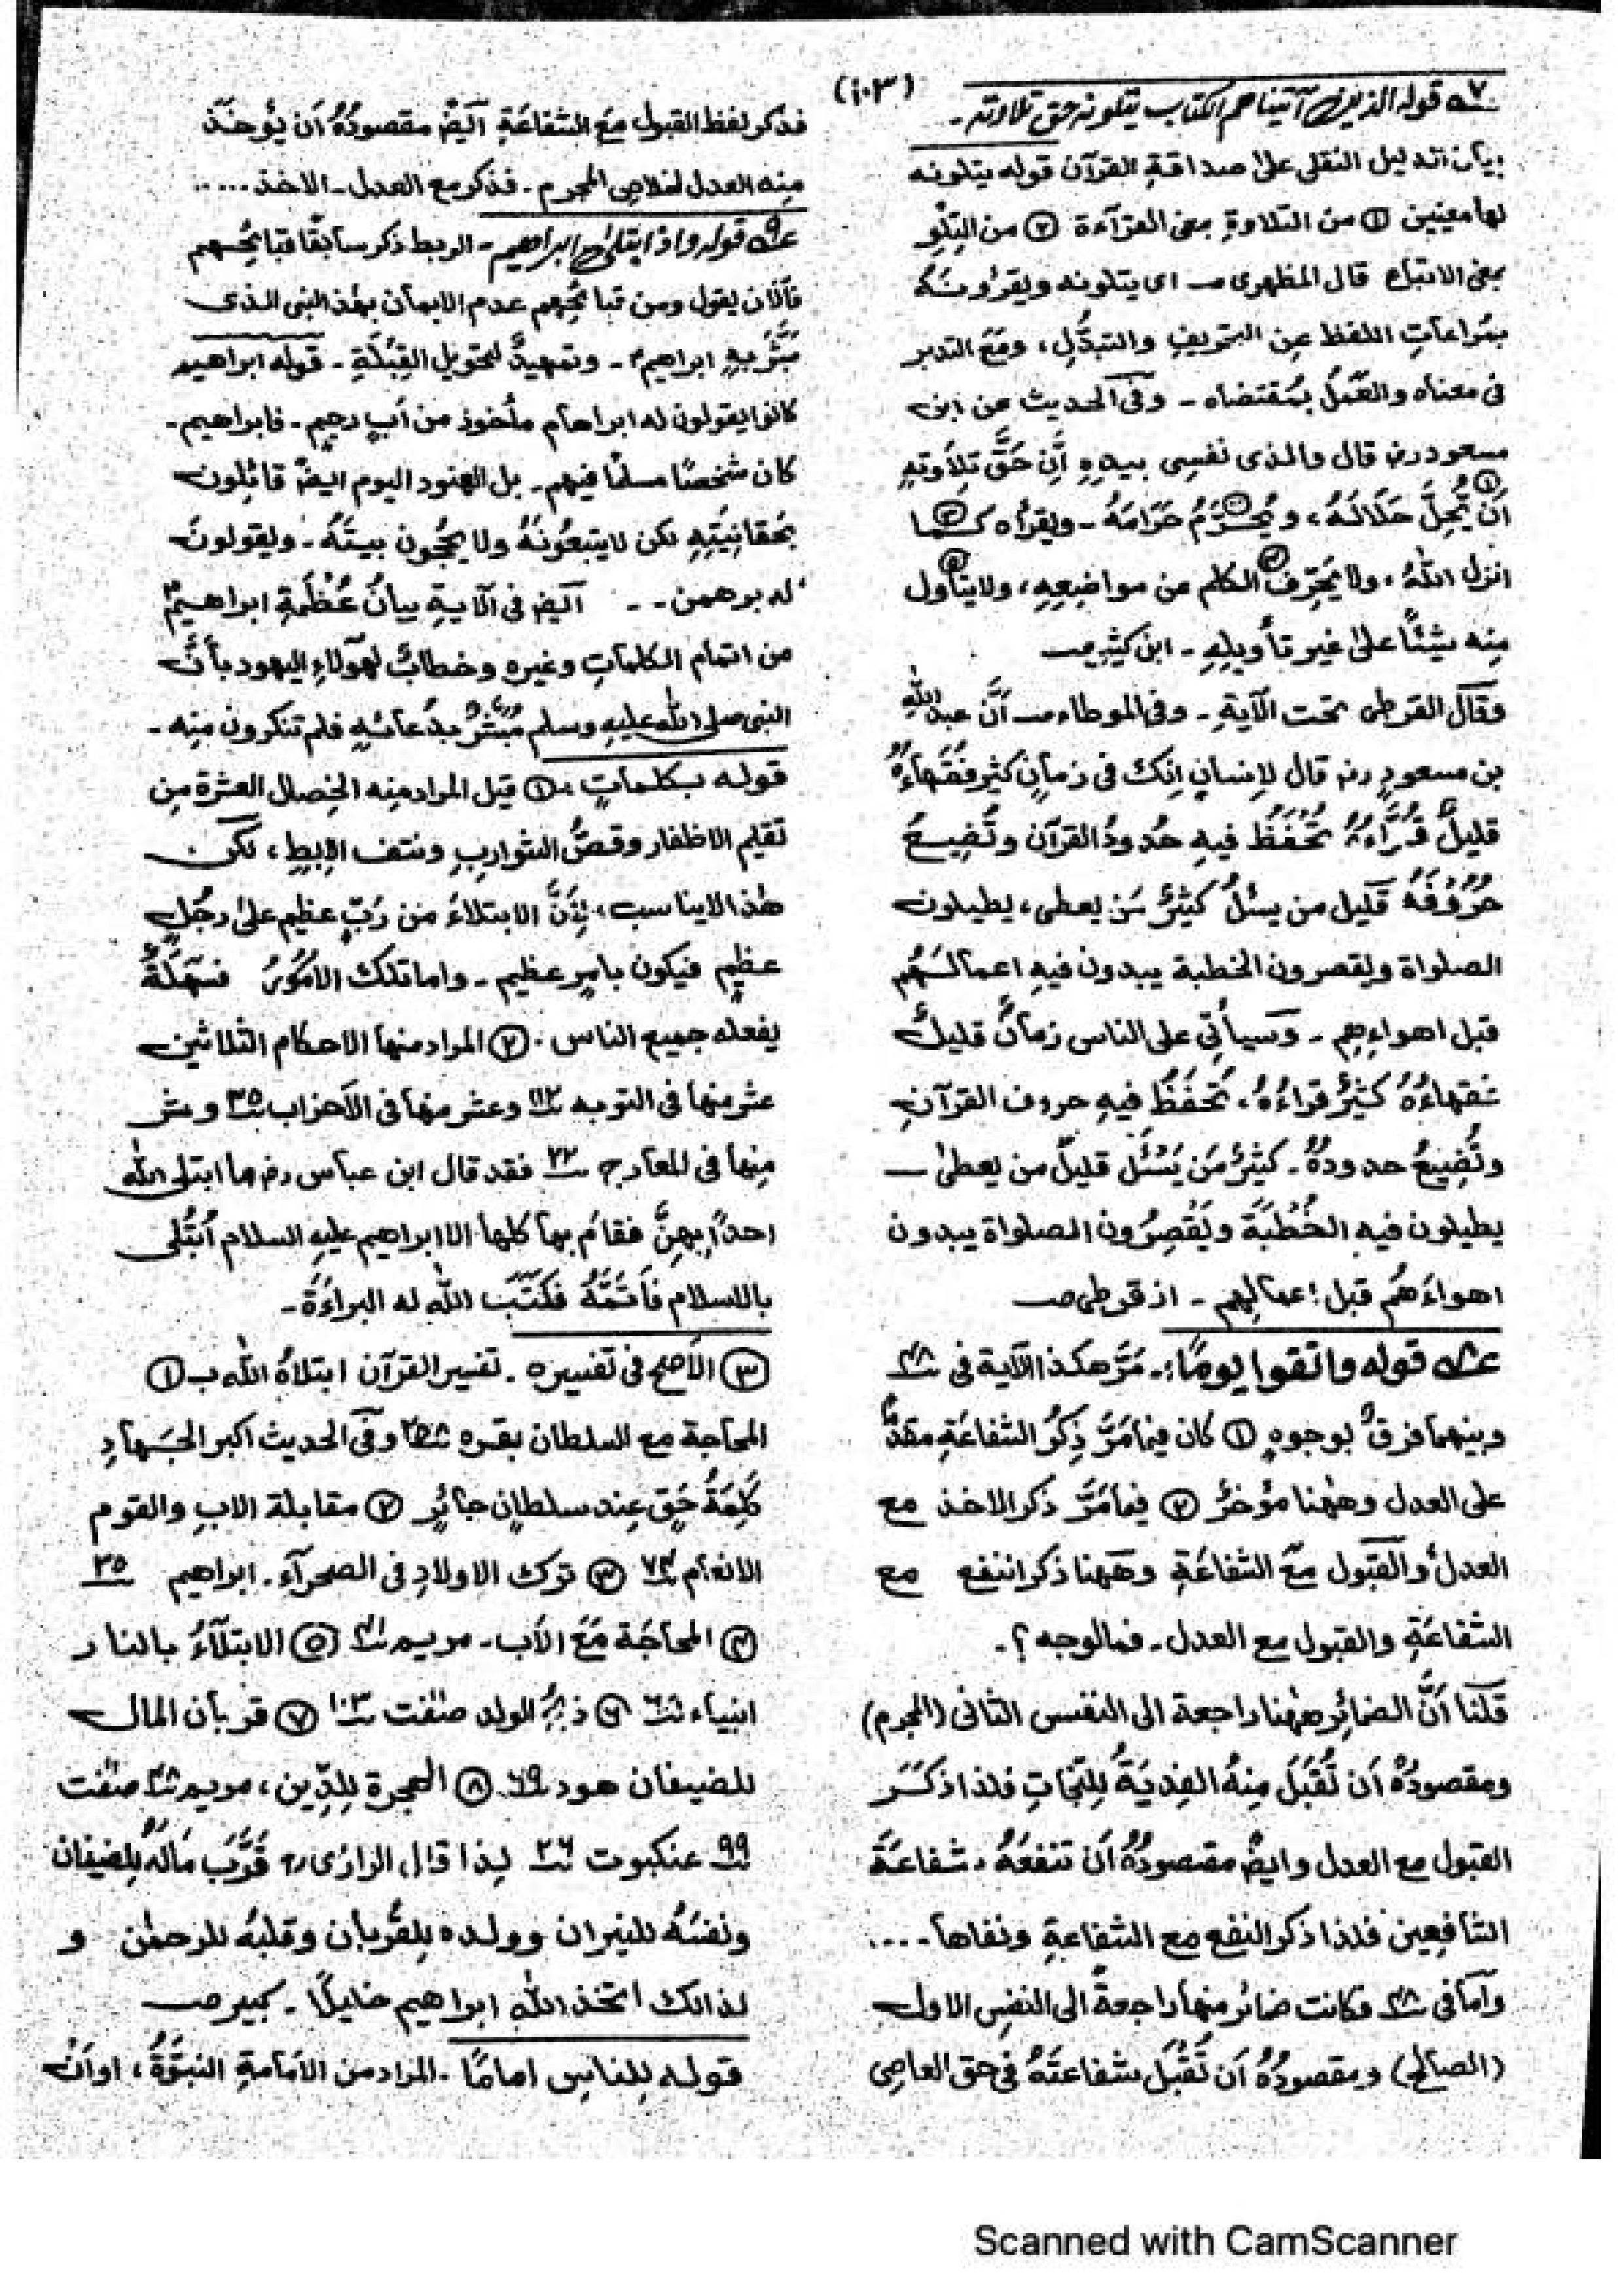 (١٠٣)
٧ قوله الذين آتيناهم الكتاب يتلونه حق تلاوته ـ
بيان الدليل النقلي على صداقة القرآن قوله يتلونه
لها معينين ① من التلاوةِ بمعنى القرآءة ② من التِلْوِ
بمعنى الاتباع قال المظهرى صـ اى يتلونه ويقرؤنَهُ
بمُراعاتِ اللفظ عن التحريفِ والتبدُّلِ، ومَعَ التدبر
فى معناه والعَمَلُ بمُقتضاه ـ وفى الحديث عن ابن
مسعود رض قال والذى نفسِى بيدِهِ أَنَّ حَقَّ تِلاَوتِهِ
① أَنْ يُّحِلَّ حَلَالَهُ، و② يُحَرِّمُ حَرَامَهُ ـ ويقرأه ③ كما
انزل اللهُ، ولا يُحَرِّف ④ الكلم عن مواضِعِهِ، ولا يتأول ⑤
مِنه شيئًا على غير تأويلِهِ ـ ابن كثير صـ
وَقَالَ القرطبى تحت الآيةِ ـ وفى الموطاء صـ أَنَّ عبدالله
بن مسعودٍ رض قال لإنسانٍ اِنَّكَ فى زمانٍ كثير فُقَهاءُهُ
قليلٌ قُرَّاءُهُ تُحْفَظُ فيهِ حُدودُ القرآن وتُضِيعُ
حُرُوْفُهُ قَلِيل من يسئلُ كثيرٌ مَن يعطى، يطيلون
الصلواة ويقصرون الخطبة يبدون فيهِ اعمالَهُم
قبل اهواءِهِم ـ وَسيأتِى على الناس زمانٌ قليلٌ
فقهاءُهُ كثيرٌ قراءُهُ، تُحفَظُ فيهِ حروف القرآنِ
وتُضِيعُ حدودهُ ـ كثيرٌ مَن يَسْئَل قليلٌ من يعطى ـ
يطيلون فيه الخُطْبَةَ ويَقْصِرُون الصلواة يبدون
اهواءَهُم قبل اعمالِهِم ـ از قرطبى صـ
٨ قوله واتقوا يومًا:ـ مَرَّ هكذا الآية فى ٤٨
وبينهما فرقٌ بوجوهٍ ① كان فيما مَرَّ ذِكرُ الشفاعَةِ مقدمًا
على العدل وهٰهنا مؤخرٌ ② فيما مَرَّ ذكر الاخذ مع
العدل والقبول مَعَ الشفاعَةِ وهَهنا ذكر النفع مع
الشفاعَةِ والقبول مع العدل ـ فما الوجه؟ ـ
قَلنا أَنَّ الضمائر هٰهنا راجعة الى النفس الثانى (المجرم)
ومقصودُهُ اَن تُقبَلَ مِنهُ الفِديَةُ لِلنَّجاتِ فلذا ذكَرَ
القبول مع العدل وايضًا مقصودُهُ اَن تنفعَهُ شفاعَةُ
الشافِعِين فلذا ذكر النفع مع الشفاعةِ ونفاها ـ ....
وَامَّا فى ٤٨ فكانت ضمائر منها راجعةً الى النفسِ الاول
(الصالح) ومقصودُهُ اَن تُقبَلَ شفاعَتُهُ فى حق العاصِى
فذكر لفظ القبول مَعَ الشفاعَةِ اَيضًا مقصودُهُ اَن يؤخذَ
مِنه العدل لخلاصِ المجرم ـ فذكر مع العدل ـ الاخذ .....
٩ قوله واذابتلىٰ ابراهيم ـ الربط ذكر سابقًا قبائحُهم
فالآن يقول ومن قبائحِهِم عدم الايمان بهٰذ النبى الذى
بَشَّرَ بهِ ابراهيمؑ ـ وتمهيدٌ لتحويل القِبْلَةِ ـ قوله ابراهيم
كانوا يقولون له ابراهام ماخوذ من اَبٍ رحيمٍ ـ فابراهيم ـ
كان شخصًا مسلمًا فيهم ـ بل الهنود اليوم ايضًا قائِلون
بحقانِيَّتِهِ لكن لا يتبِعُونَهُ ولا يحجون بيتَهُ ـ ويقولونَ
له برهمن ـ ـ ايضًا فى الآيةِ بيانُ عَظْمَةِ ابراهيمؑ
من اتمام الكلماتِ وغيرهِ وخطابٌ لهؤلاءِ اليهود بأَنَّ
النبى صلى الله عليهِ وسلم مُبَشَّرٌ بدُعائهِ فلم تنكرون مِنه ـ
قوله بكلماتٍ، ① قيل المراد مِنه الخِصال العشرة مِن
تقليم الاظفار وقصُّ الشوارِبِ ونتف الاِبطِ، لكن
هٰذا لا يناسب، لِأَنَّ الابتلاءَ مَن رَبٍّ عظيم على رجُلٍ
عظيمٍ فيكون بامرٍ عظيم ـ واما تلك الامُورُ فسَهْلَةٌ
يفعله جميع الناس. ② المراد منها الاحكام الثلاثين
عشر منها فى التوبه ١١٢ وعشر منها فى الاَحزاب ٣٥ وعشر
مِنها فى المعارج ٢٢ فقد قال ابن عباس رض ما ابتلى الله
احدًا بِهِنَّ فقامَ بها كلها الا ابراهيم عليهِ السلام اُبتُلِى
بالاسلام فَاَتَمَّهُ فكَتَبَ اللهُ له البراءَةَ ـ
③ الاَصح فى تفسيره ـ تفسير القرآن ابتلاهُ الله ب ①
المحاجة مع السلطان بقره وفى الحديث اكبر الجهادِ
كَلِمَةُ حَقٍ عِند سلطانٍ جائرٍ ② مقابلة الابِ والقوم
الانعام ٧٤ ③ ترك الاولادِ فى الصحرآءِ ـ ابراهيم ٣٥
④ المحاجَة مَعَ الاَب ـ مريم ⑤ الابتلَآءُ بالنار
انبياء ⑥ ذبحُ الولد صٰفٰت ⑦ قربان المال
للضيفان هود ٦٩ ⑧ الهجرة لِلدِّين، مريم صٰفٰت
٩٩ عنكبوت ٢٦ لِذا قال الرازىرح قَرَّبَ مَالَهُ لِلضيفان
ونفسَهُ للنيران وولده لِلقُربان وقلبَهُ للرحمٰن و
لذالك اتخذ اللهُ ابراهيم خليلًا ـ كبير صـ
قوله لِلناسِ امامًا ـ المراد من الاَمامةِ النبوَّةُ، او اَن
Scanned with CamScanner